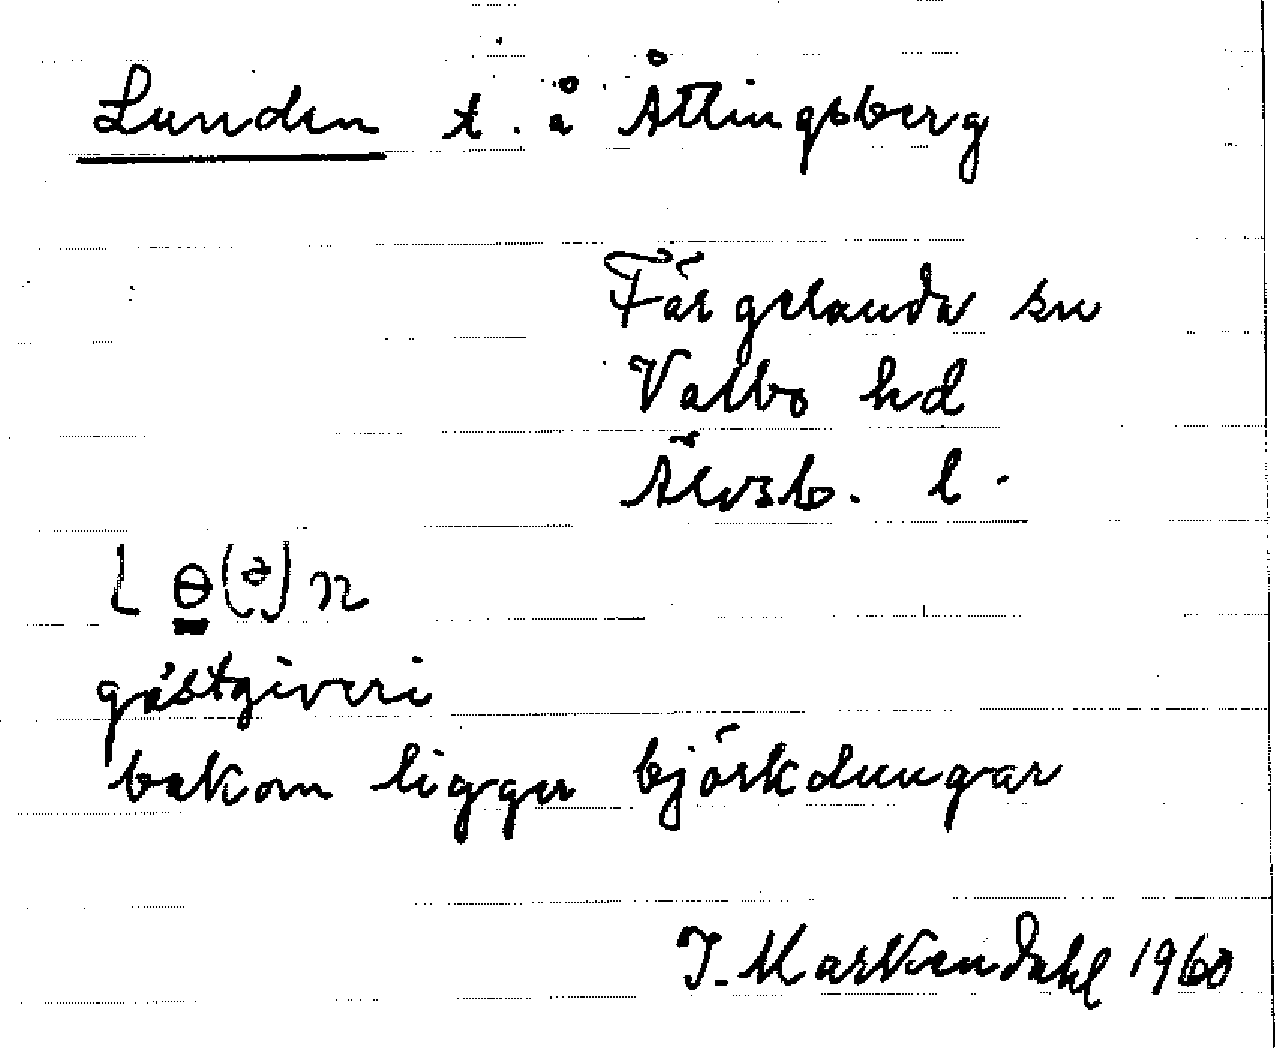 Lunden t. å Åttingsberg
Färgelanda sn
Valbo hd
Älvsb. l.
L ɵ(ə)n
gästgiveri
bakom ligger björkdungar
I. Markendahl 1960